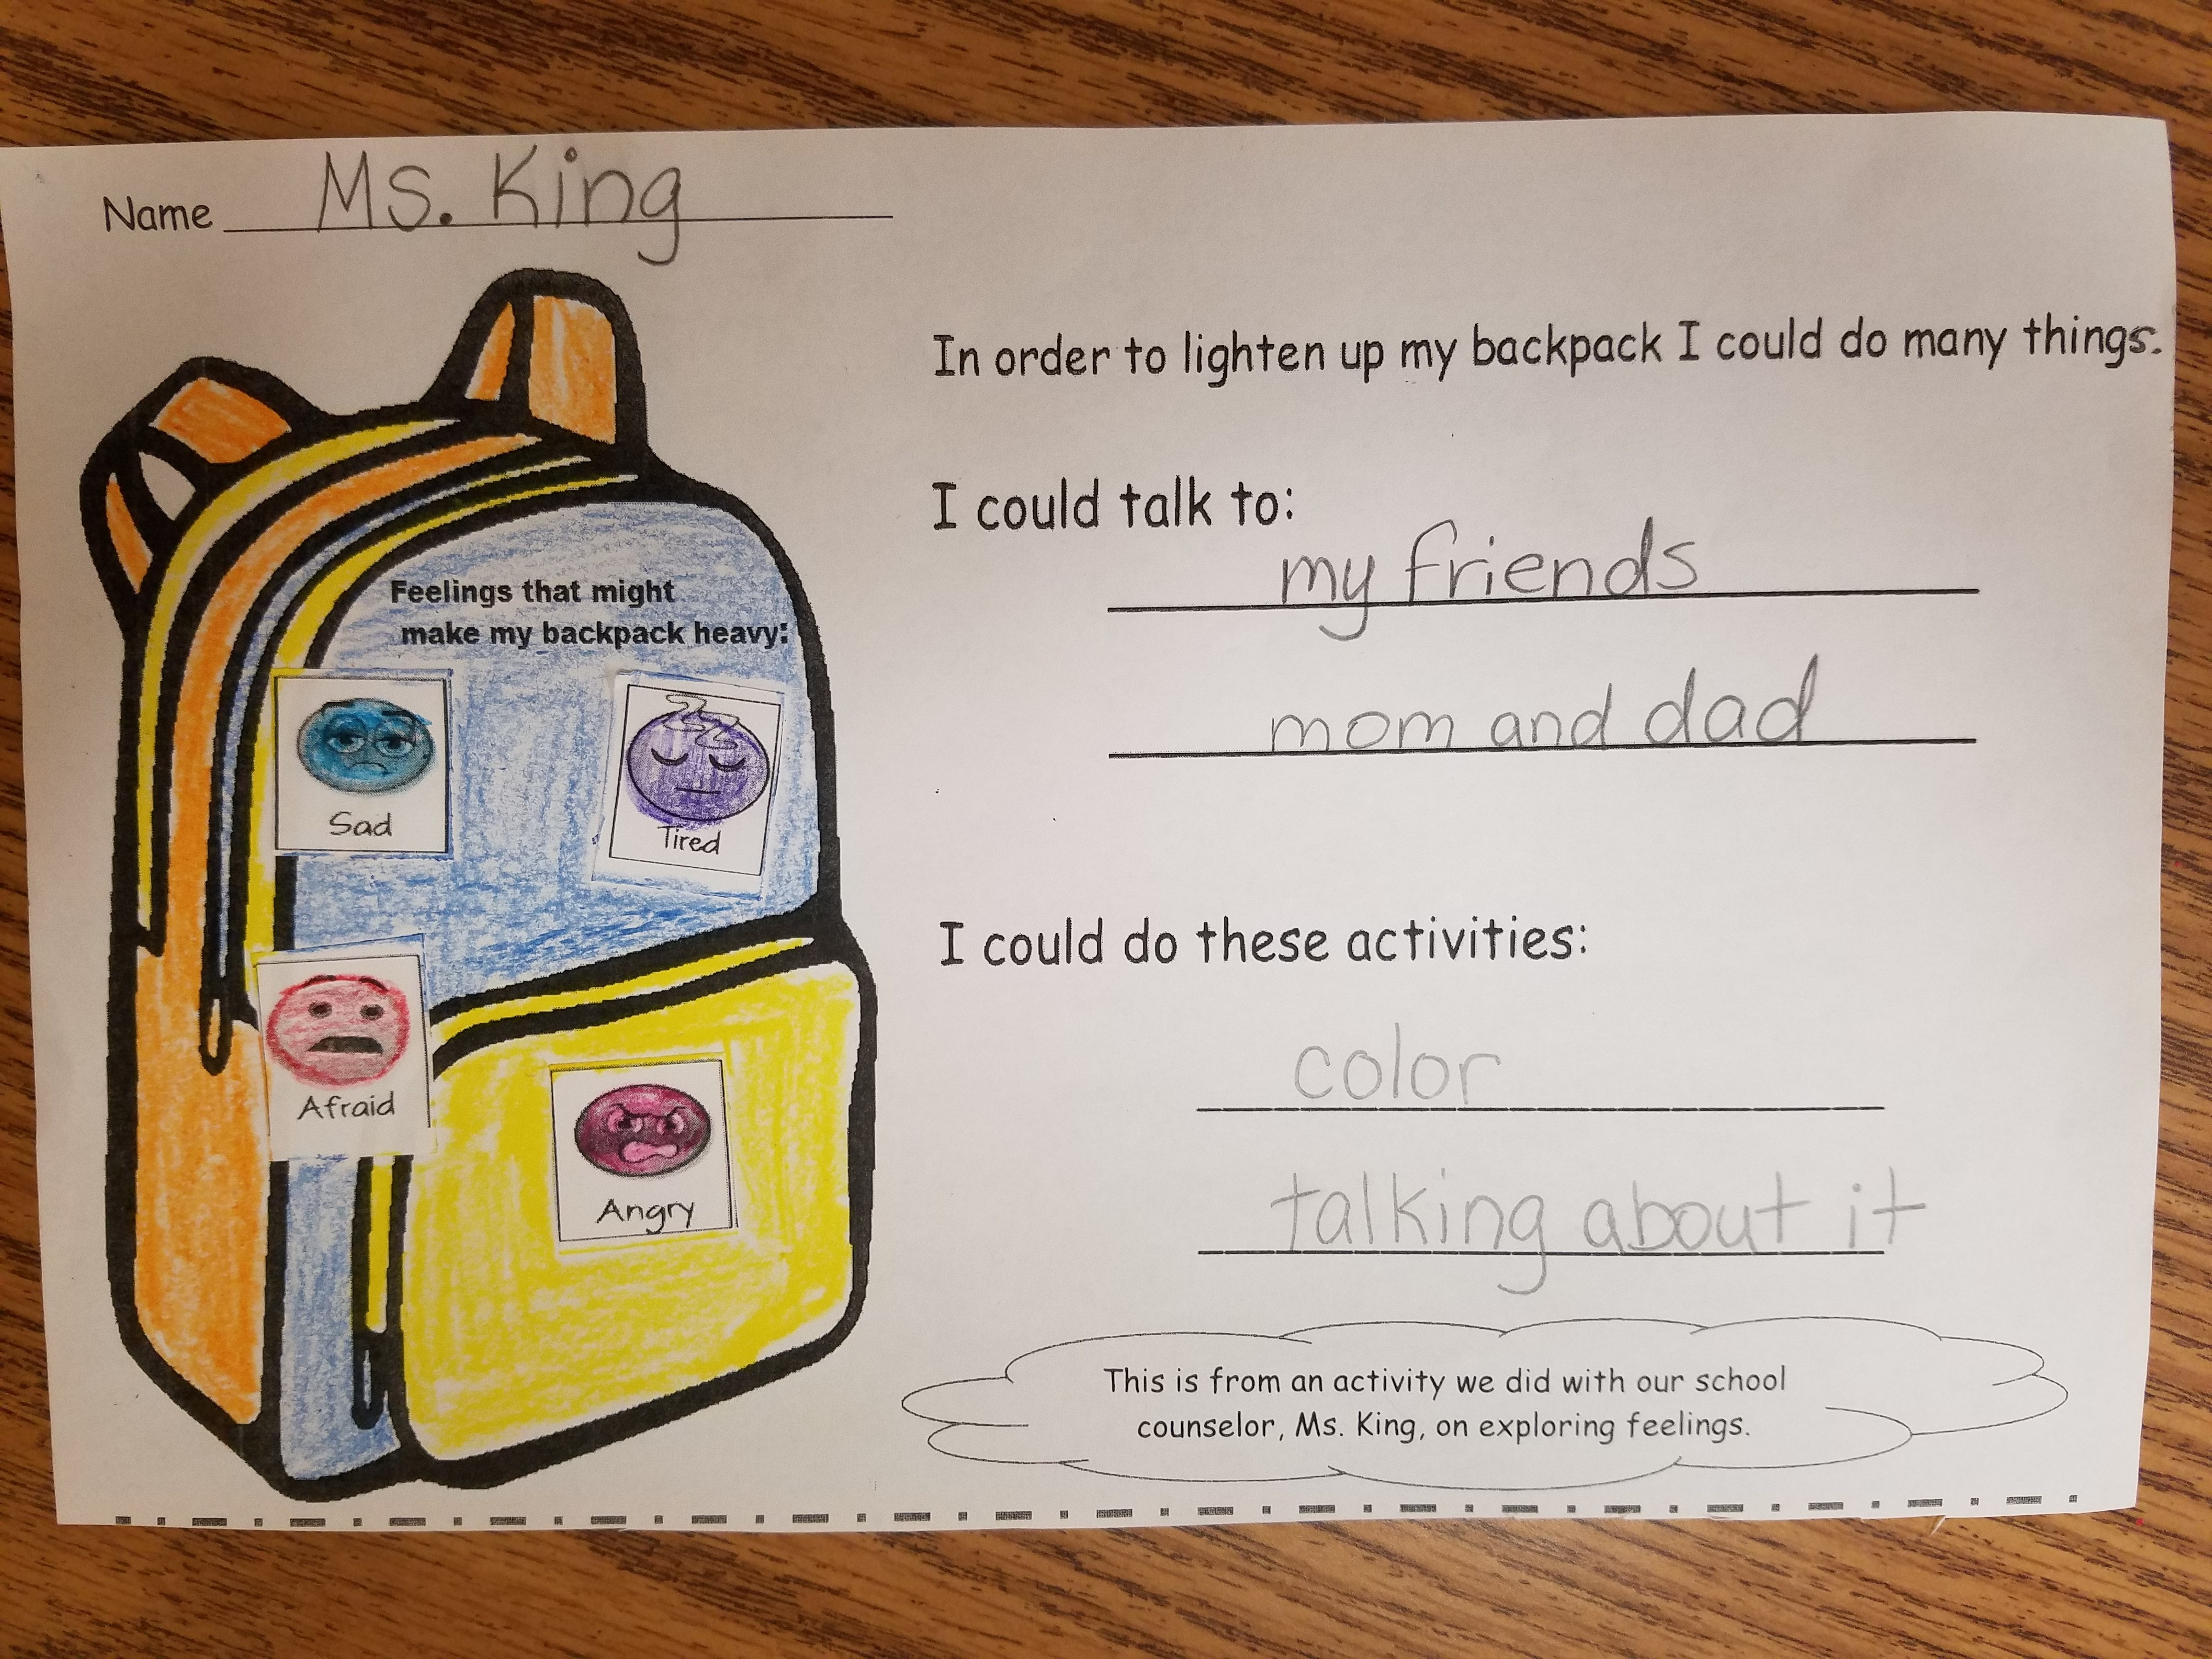 Name Ms. King
In order to lighten up my backpack I could do many things.
I could talk to:
my friends
mom and dad
Feelings that might
make my backpack heavy:
Sad
Tired
Afraid
Angry
I could do these activities:
color
talking about it
This is from an activity we did with our school
counselor, Ms. King, on exploring feelings.